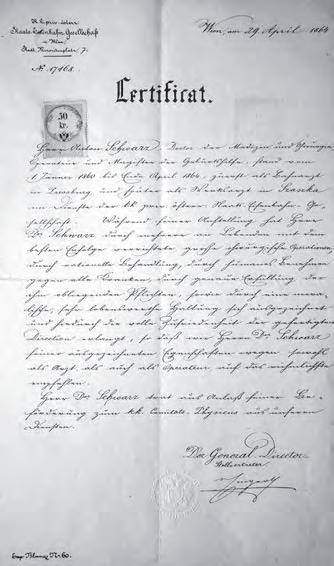 K. k. priv. österr.
Staats-Eisenbahn-Gesellschaft
in Wien,
Stadt, Minoritenplatz 7.
No. 17468.
Wien, am 29. April 1864
50
kr.
Certificat.
Herr Anton Schwarz, Doctor der Medizin und Chirurgie,
Operateur und Magister der Geburtshilfe, stand vom
1. Jänner 1860 bis Ende April 1864, zuerst als Bahnarzt
in und später als Werksarzt in
im Dienste der kk priv. österr. Staats-Eisenbahn-Ge-
sellschaft. Während seiner Anstellung hat Herr
Dr. Schwarz durch mehrere an Lebenden mit dem
besten Erfolge verrichtete große chirurgische Operationen,
durch rationelle Behandlung, durch humanes Benehmen
gegen alle Kranken, durch genaue Erfüllung der
ihm obliegenden Pflichten, sowie durch eine mora-
lische, sehr lobenswerthe Haltung sich ausgezeichnet
und hiedurch die volle Zufriedenheit der gefertigten
Direction erlangt, so daß wir Herrn Dr. Schwarz
seiner ausgezeichneten Eigenschaften wegen sowohl
als Arzt, als auch als Operateur auf das
empfehlen.
Herr Dr. Schwarz trat aus Anlaß seiner Be-
förderung zum kk. Comitats-Physikus aus unseren
Diensten.
Der General-Director
Stellvertreter
Nr. 60.